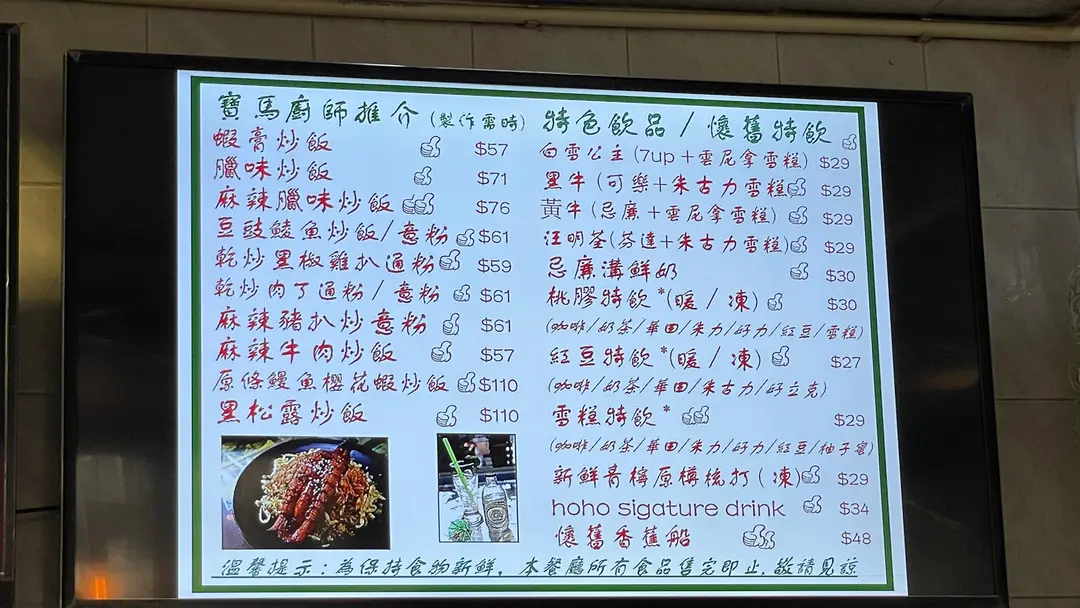 寶馬廚師推介(製作需時)
蝦膏炒飯 $57
臘味炒飯 $71
麻辣臘味炒飯 $76
豆豉鯪魚炒飯/意粉 $61
乾炒黑椒雞扒通粉 $59
乾炒肉丁通粉/意粉 $61
麻辣豬扒炒意粉 $61
麻辣牛肉炒飯 $57
原條鰻魚櫻花蝦炒飯 $110
黑松露炒飯 $110
特色飲品/懷舊特飲
白雪公主(7up+雲尼拿雪糕) $29
黑牛(可樂+朱古力雪糕) $29
黃牛(忌廉+雲尼拿雪糕) $29
汪明荃(芬達+朱古力雪糕) $29
忌廉溝鮮奶 $30
桃膠特飲*(暖/凍) $30
(咖啡/奶茶/華田/朱力/好力/紅豆/雪糕)
紅豆特飲*(暖/凍) $27
(咖啡/奶茶/華田/朱古力/好立克)
雪糕特飲* $29
(咖啡/奶茶/華田/朱力/好力/紅豆/柚子蜜)
新鮮青檸原樽梳打(凍) $29
hoho sigature drink $34
懷舊香蕉船 $48
溫馨提示:為保持食物新鮮,本餐廳所有食品售完即止,敬請見諒